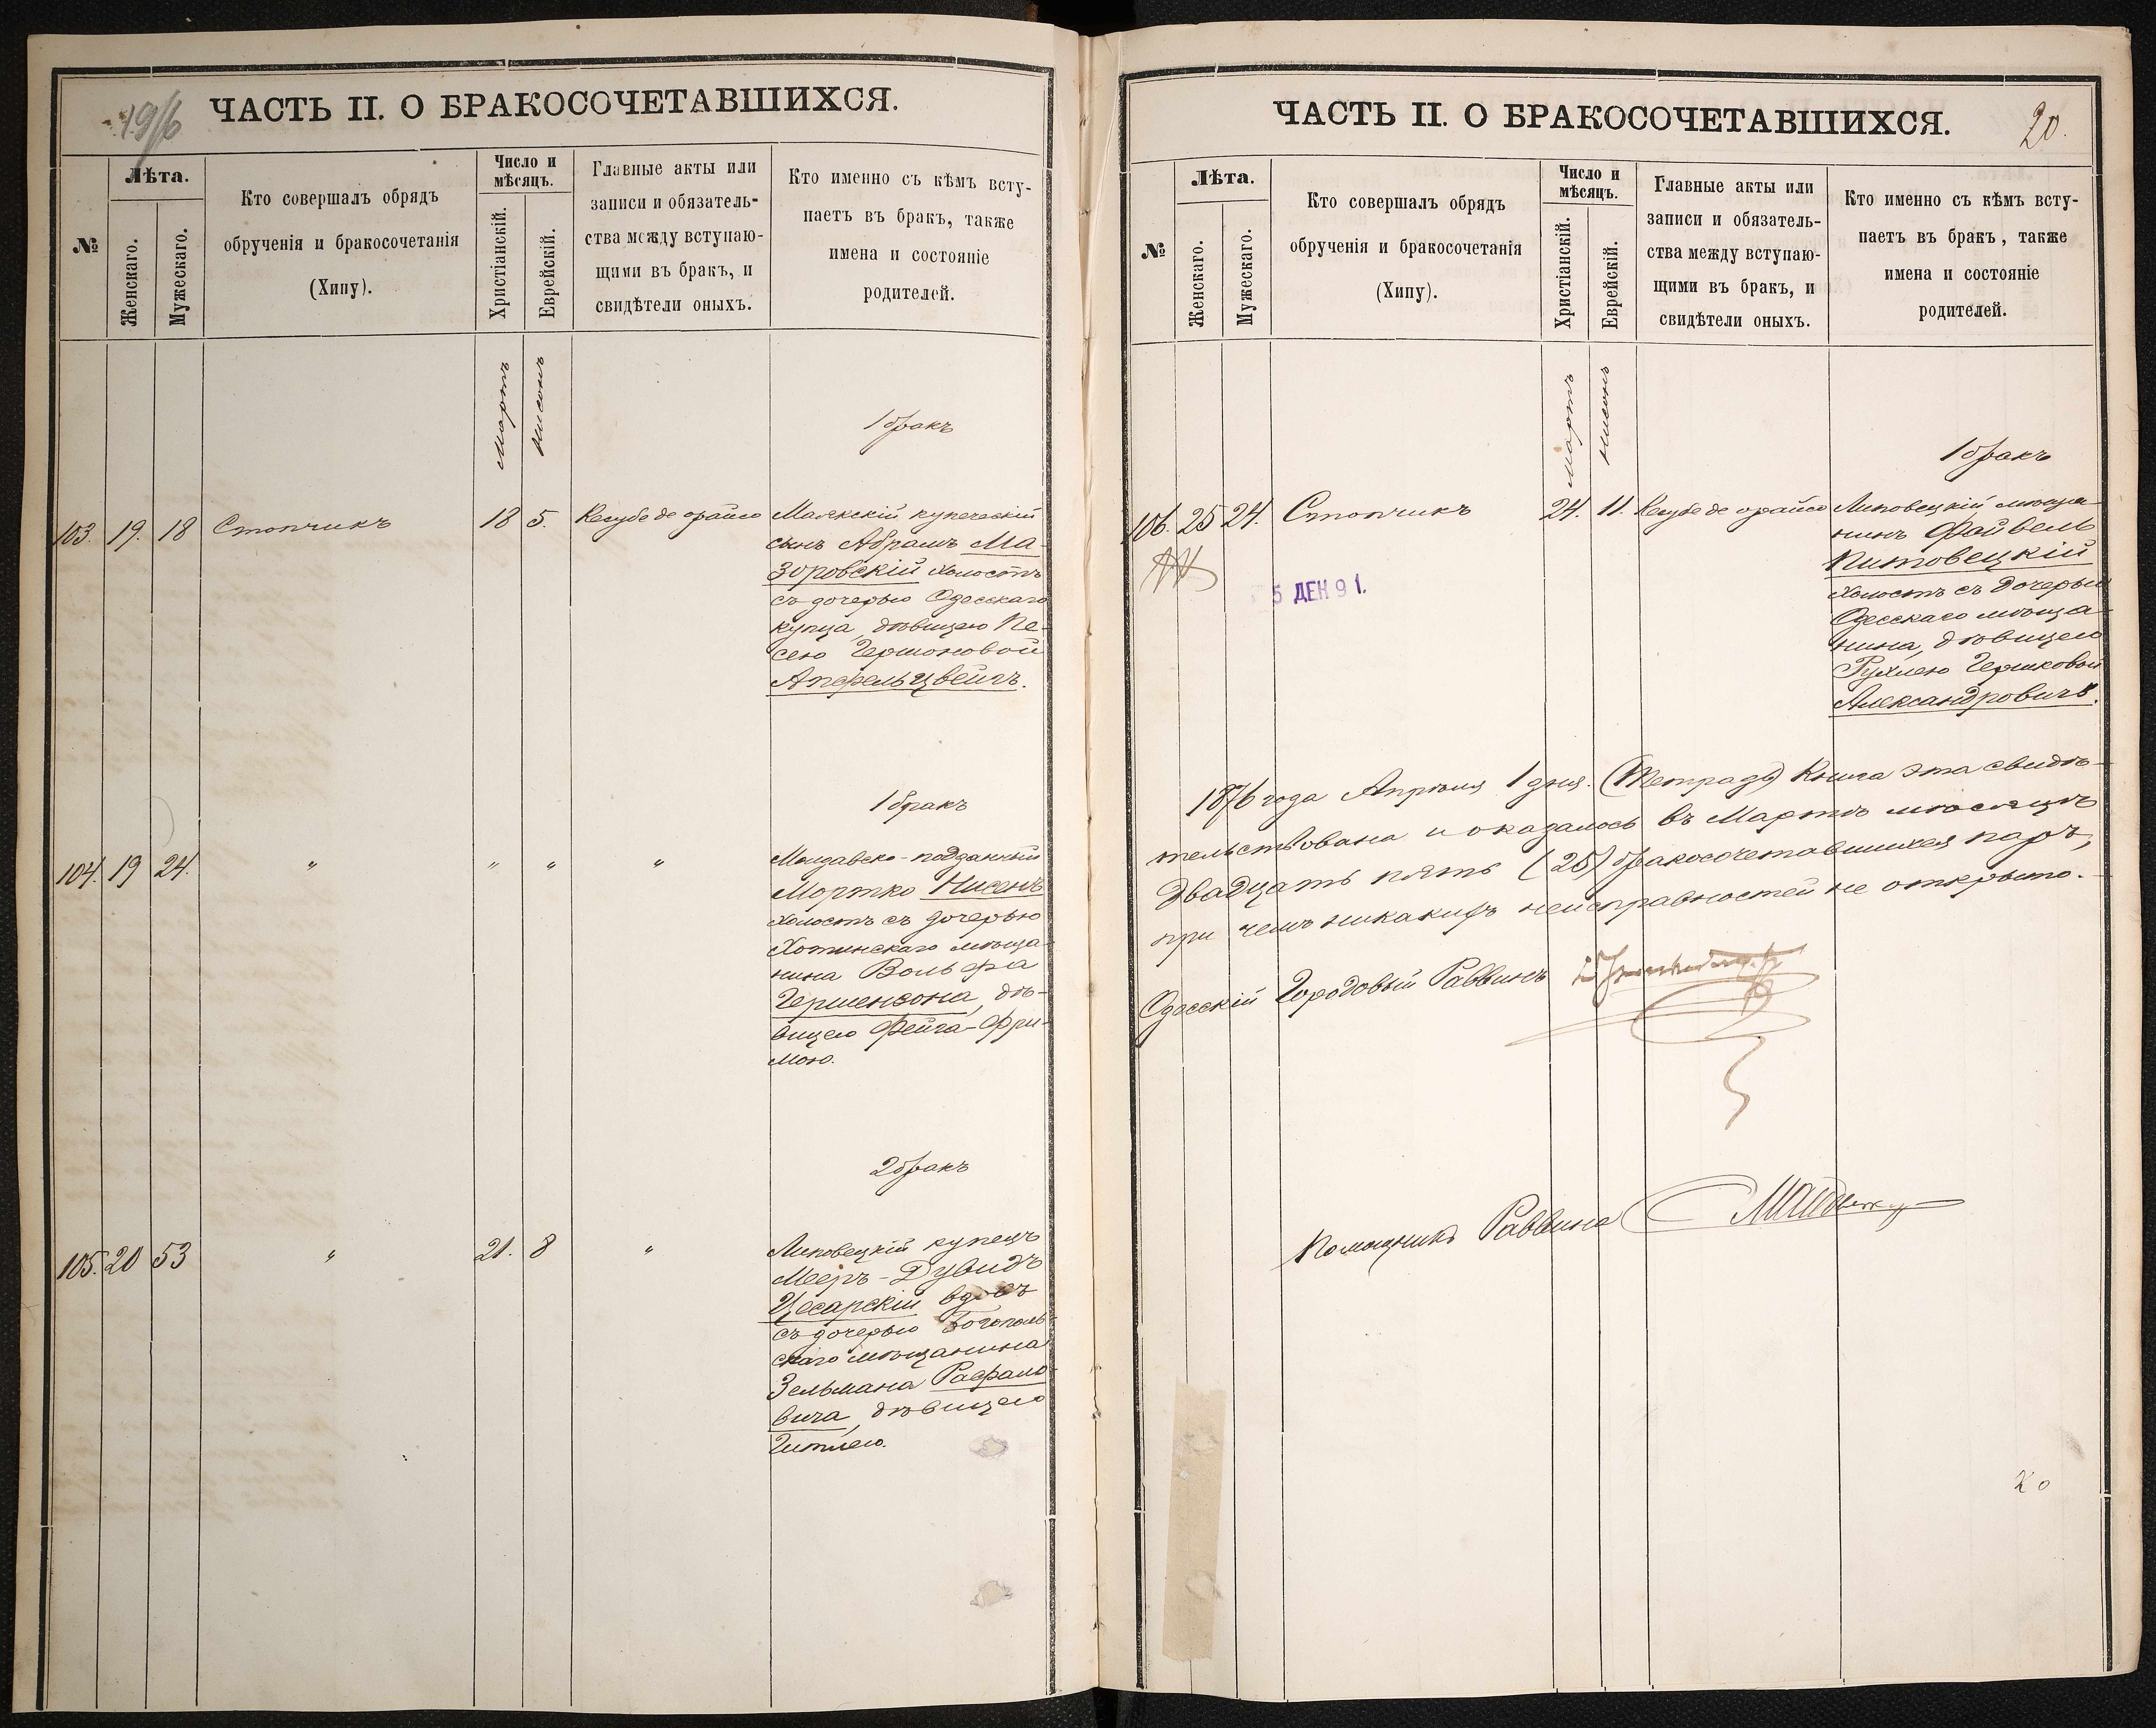 19/6
ЧАСТЬ II. О БРАКОСОЧЕТАВШИХСЯ.
№
Лѣта.
Женскаго.
Мужескаго.
Кто совершалъ обрядъ
обрученія и бракосочетанія
(Хипу).
Число и
мѣсяцъ.
Христіанскій.
Еврейскій.
Главные акты или
записи и обязатель-
ства между вступаю-
щими въ бракъ, и
свидѣтели оныхъ.
Кто именно съ кѣмъ всту-
паетъ въ бракъ, также
имена и состояніе
родителей.
Мартъ
Нисонъ
1 бракъ
103. 19. 18 Столчикъ 18 5. Кесубе де орайсо Маякскій купеческій
сынъ Абрамъ Ма-
зоровскій холостъ
съ дочерью Одесскаго
купца, дѣвицею Пе-
сею Гершоновой
Апфельцвейгъ.
1 бракъ
104. 19 24. " " " " Молдавско-подданный
Мортко Нисенъ
холостъ съ дочерью
Хотинскаго мѣща-
нина Вольфа
Гершензона, дѣ-
вицею Фейга-Фри-
мою.
2 бракъ
105. 20 53 " 21. 8 " Липовецкій купецъ
Мееръ-Дувидъ
Цесарскій вдовъ
съ дочерью Богополь-
скаго мѣщанина
Зельмана Рафало-
вича, дѣвицею
Гитлею.
ЧАСТЬ II. О БРАКОСОЧЕТАВШИХСЯ.
20.
№
Лѣта.
Женскаго.
Мужескаго.
Кто совершалъ обрядъ
обрученія и бракосочетанія
(Хипу).
Число и
мѣсяцъ.
Христіанскій.
Еврейскій.
Главные акты или
записи и обязатель-
ства между вступаю-
щими въ бракъ, и
свидѣтели оныхъ.
Кто именно съ кѣмъ всту-
паетъ въ бракъ, также
имена и состояніе
родителей.
Мартъ
Нисонъ
1 бракъ
106. 25 24. Столчикъ 24. 11. Кесубе де орайсо Липовецкій мѣща-
нинъ Файвель
Питовецкій
холостъ съ дочерью
Одесскаго мѣща-
нина, дѣвицею
Рухлею Гершковой
Александровичъ.
5 ДЕК 91.
1876 года Апрѣля 1 дня. (Тетрадь) Книга эта свидѣ-
тельствована и оказалось въ Мартѣ мѣсяцѣ
двадцать пять (25) бракосочетавшихся паръ,
при чемъ никакихъ неисправностей не открыто.
Одесскій Городовый Раввинъ
Помощникъ Раввина
20